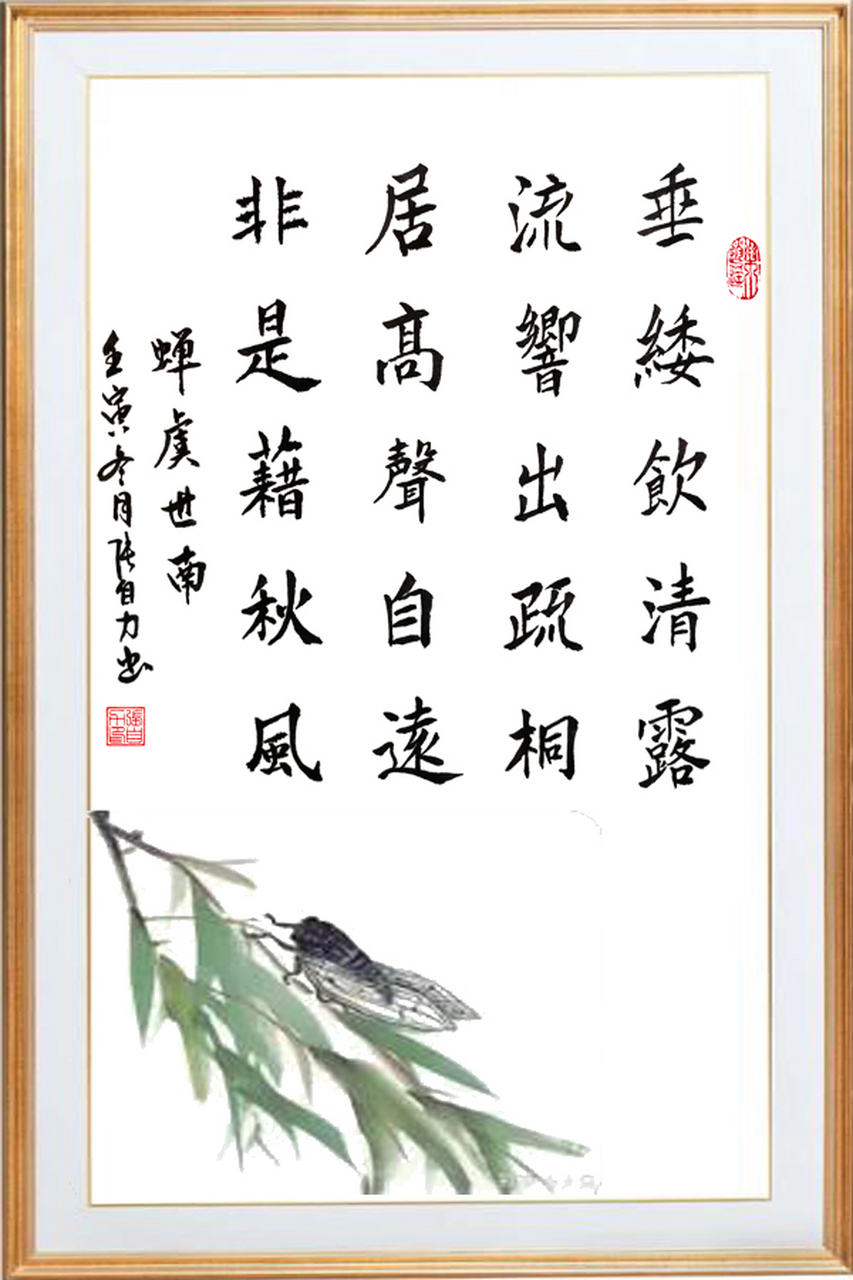 垂緌飲清露
流響出疏桐
居高聲自遠
非是藉秋風
蝉虞世南
壬寅冬月张自力书